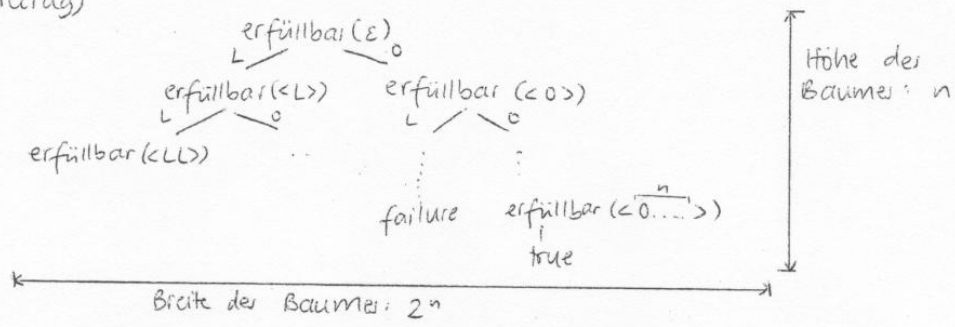 erfüllbar(ε)
L O
erfüllbar(<L>) erfüllbar(<O>)
L O L O
erfüllbar(<LL>) .. : :
failure erfüllbar(<O....>)
n
true
Höhe des
Baumes: n
Breite des Baumes: 2ⁿ